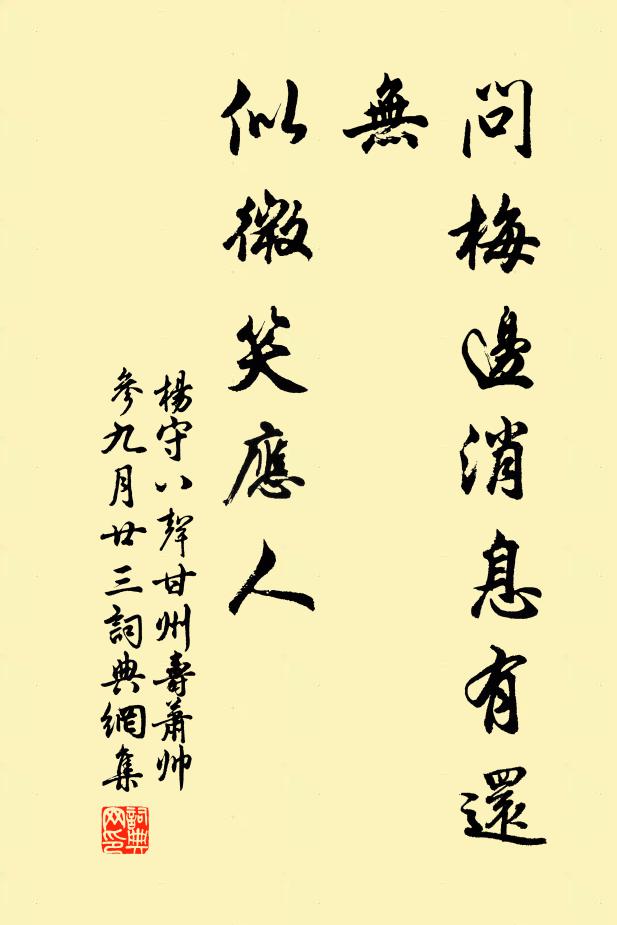 問梅邊消息有還
無
似微笑應人
楊守八聲甘州壽蕭帅
參九月廿三詞典網集
詞典网印